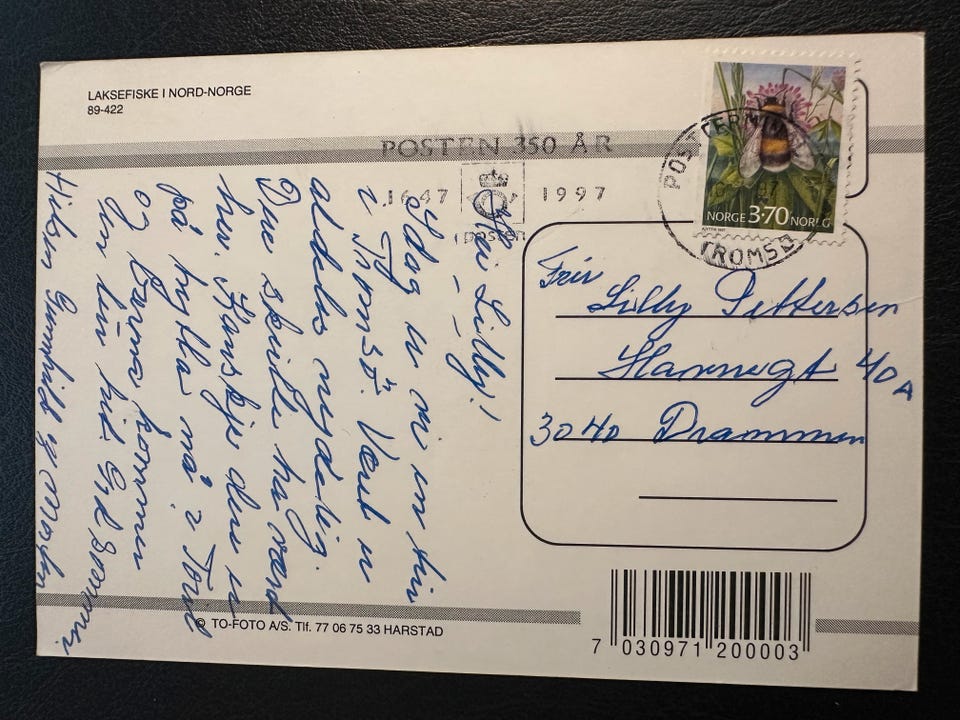 LAKSEFISKE I NORD-NORGE
89-422
POSTEN 350 ÅR
1647 1997
posten
POSTTERMINAL
TROMSØ
NORGE 3·70 NOREG
Hei Lilly!
Idag er vi en tur
i Tromsø. Været er
aldeles nydelig.
Du skulle ha vært
her. Kanskje du er
på hytta nå? Toril
og kommer
en tur hit. God sommer.
Hilsen Gunnhild og
Frk
Lilly Pettersen
Havnegt 40A
3040 Drammen
© TO-FOTO A/S. Tlf. 77 06 75 33 HARSTAD
7 030971 200003